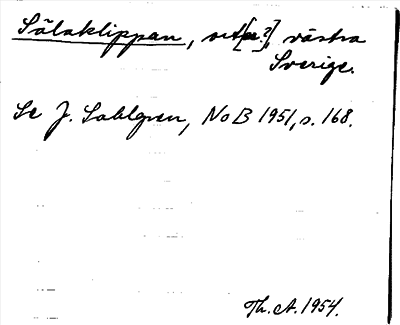 Sälaklippan, ort[sn.?], västra
Sverige.
Se J. Sahlgren, NoB 1951, s. 168.
Th. A. 1954.